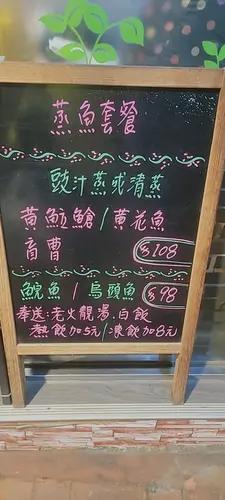 蒸魚套餐
豉汁蒸或清蒸
黃鱲鯧/黃花魚
盲曹 $108
鯇魚/烏頭魚 $98
奉送:老火靚湯.白飯
熱飲加5元/凍飲加8元